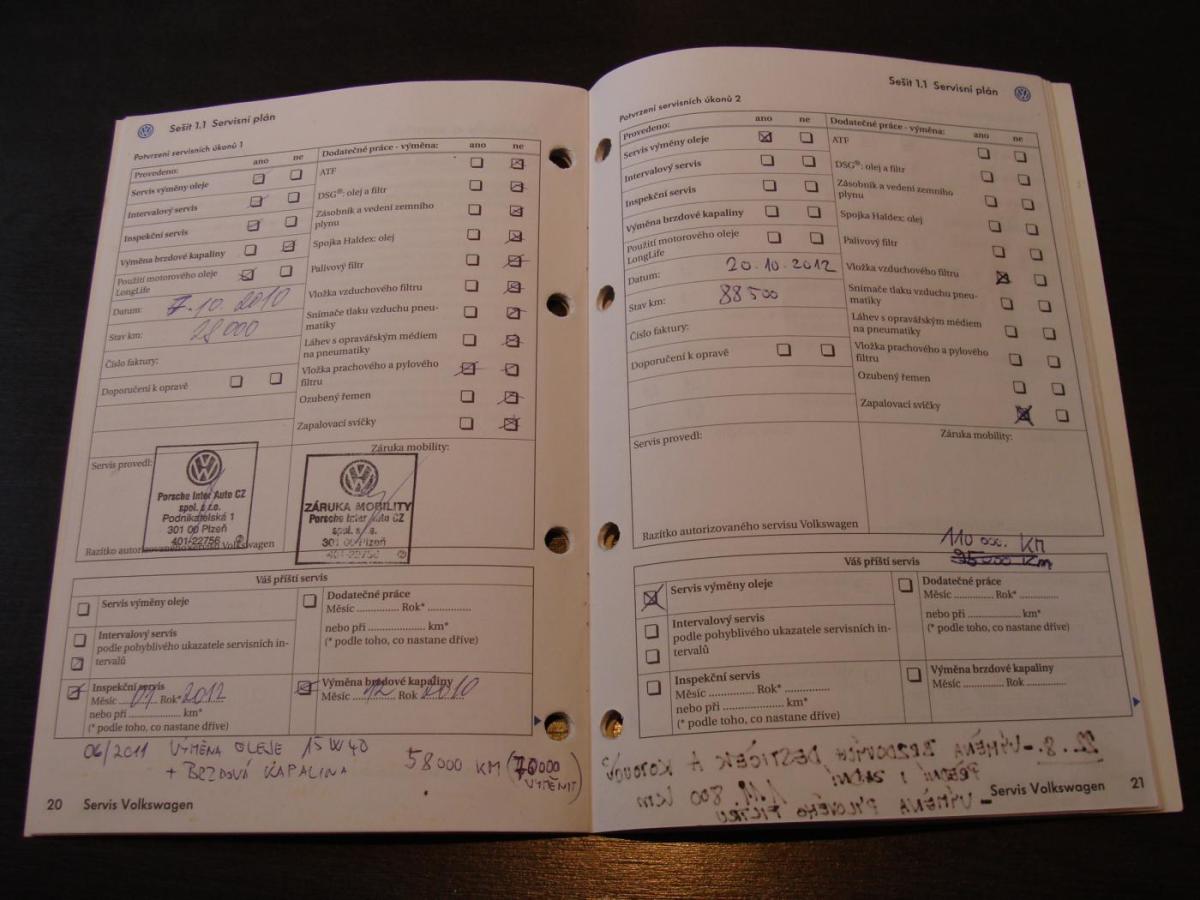 Sešit 1.1 Servisní plán
Potvrzení servisních úkonů 1
Provedeno:
ano
ne
Servis výměny oleje
Intervalový servis
Inspekční servis
Výměna brzdové kapaliny
Použití motorového oleje
LongLife
Datum:
7.10.2010
Stav km:
28000
Číslo faktury:
Doporučení k opravě
Dodatečné práce - výměna:
ano
ne
ATF
DSG®: olej a filtr
Zásobník a vedení zemního
plynu
Spojka Haldex: olej
Palivový filtr
Vložka vzduchového filtru
Snímače tlaku vzduchu pneu-
matiky
Láhev s opravářským médiem
na pneumatiky
Vložka prachového a pylového
filtru
Ozubený řemen
Zapalovací svíčky
Servis provedl:
Porsche Inter Auto CZ
spol. s r.o.
Podnikatelská 1
301 00 Plzeň
401-22756
Razítko autorizovaného servisu Volkswagen
Záruka mobility:
ZÁRUKA MOBILITY
Porsche Inter Auto CZ
spol. s r.o.
301 00 Plzeň
401-22756
Váš příští servis
Servis výměny oleje
Intervalový servis
podle pohyblivého ukazatele servisních in-
tervalů
Inspekční servis
Měsíc 07 Rok* 2012
nebo při .................. km*
(* podle toho, co nastane dříve)
Dodatečné práce
Měsíc .............. Rok* ..............
nebo při .................... km*
(* podle toho, co nastane dříve)
Výměna brzdové kapaliny
Měsíc 12 Rok 2010
06/2011 VÝMĚNA OLEJE 15W40 58000 KM (70000
+ BRZDOVÁ KAPALINA VÝMĚNIT)
20 Servis Volkswagen
Sešit 1.1 Servisní plán
Potvrzení servisních úkonů 2
Provedeno:
ano
ne
Servis výměny oleje
Intervalový servis
Inspekční servis
Výměna brzdové kapaliny
Použití motorového oleje
LongLife
Datum:
20.10.2012
Stav km:
88500
Číslo faktury:
Doporučení k opravě
Dodatečné práce - výměna:
ano
ne
ATF
DSG®: olej a filtr
Zásobník a vedení zemního
plynu
Spojka Haldex: olej
Palivový filtr
Vložka vzduchového filtru
Snímače tlaku vzduchu pneu-
matiky
Láhev s opravářským médiem
na pneumatiky
Vložka prachového a pylového
filtru
Ozubený řemen
Zapalovací svíčky
Servis provedl:
Záruka mobility:
Razítko autorizovaného servisu Volkswagen
110 000. KM
95000 Km
Váš příští servis
Servis výměny oleje
Intervalový servis
podle pohyblivého ukazatele servisních in-
tervalů
Inspekční servis
Měsíc .............. Rok* ..............
nebo při .................. km*
(* podle toho, co nastane dříve)
Dodatečné práce
Měsíc .............. Rok* ..............
nebo při .................... km*
(* podle toho, co nastane dříve)
Výměna brzdové kapaliny
Měsíc .............. Rok ..............
- VÝMĚNA PYLOVÉHO FILTRU
PŘEDNÍ I ZADNÍ 111.800 km
22.8. - VÝMĚNA BRZDOVÝCH DESTIČEK A KOTOUČŮ
Servis Volkswagen 21